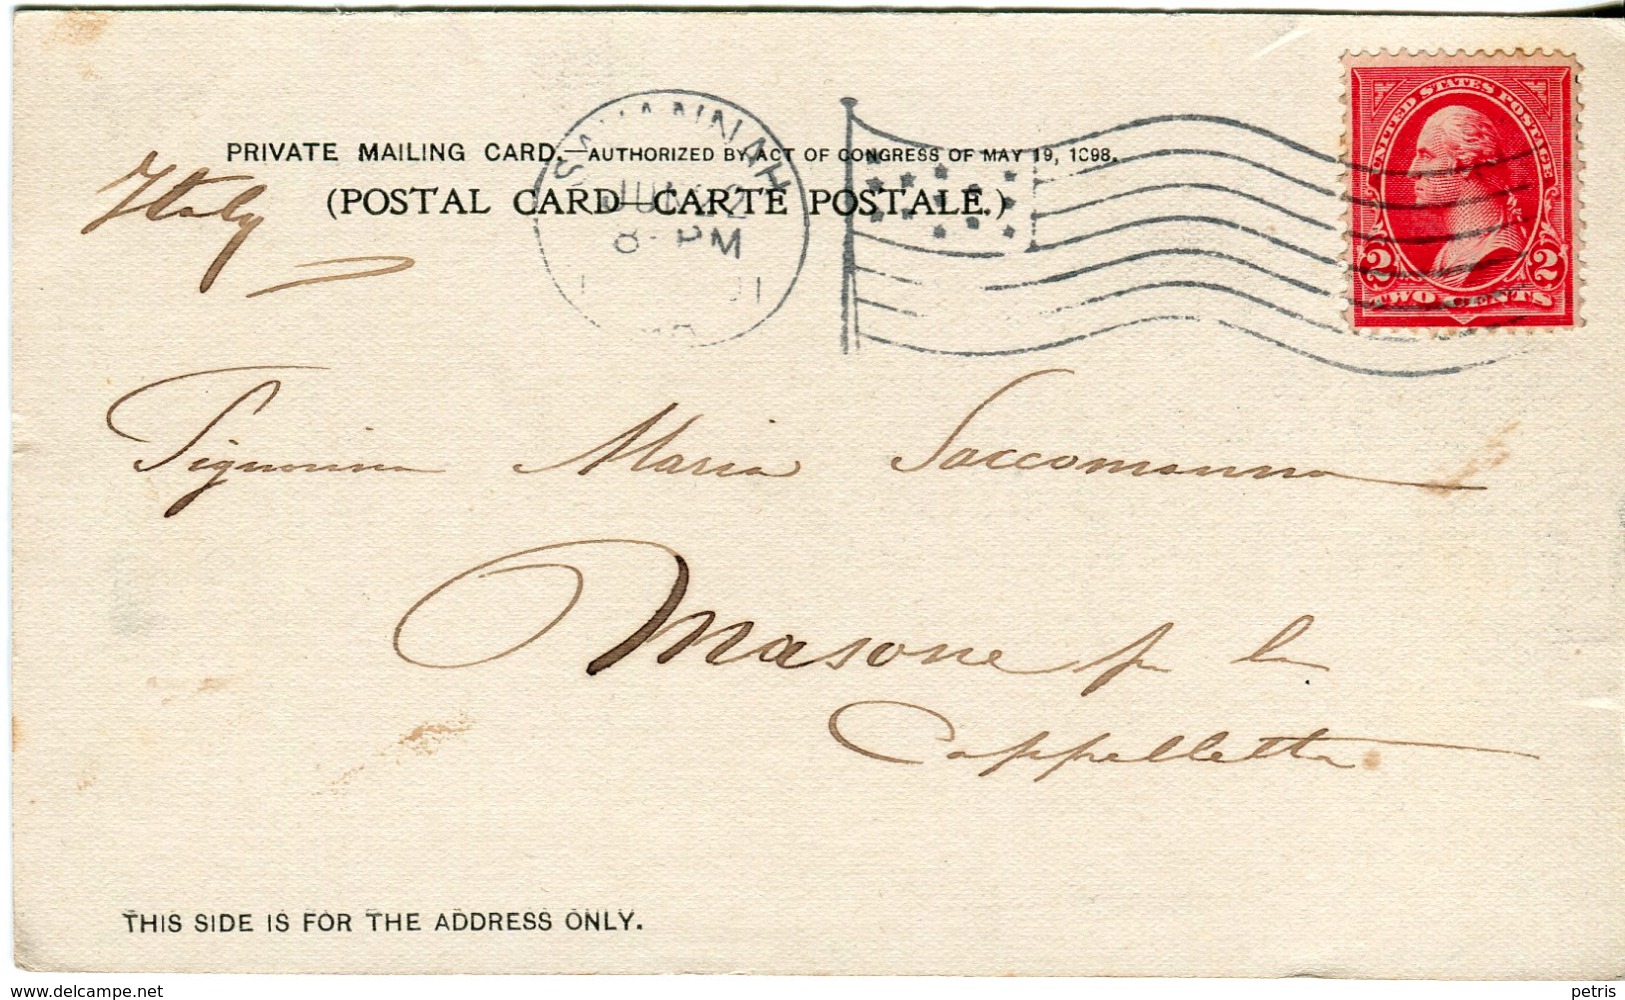 UNITED STATES POSTAGE
SAVANNAH
PRIVATE MAILING CARD.—AUTHORIZED BY ACT OF CONGRESS OF MAY 19, 1898.
Italy
(POSTAL CARD—CARTE POSTALE.)
8 PM
2 2
TWO CENTS
Signorina Maria Saccomanno
Masone p la
Cappelletta
THIS SIDE IS FOR THE ADDRESS ONLY.
www.delcampe.net
petris